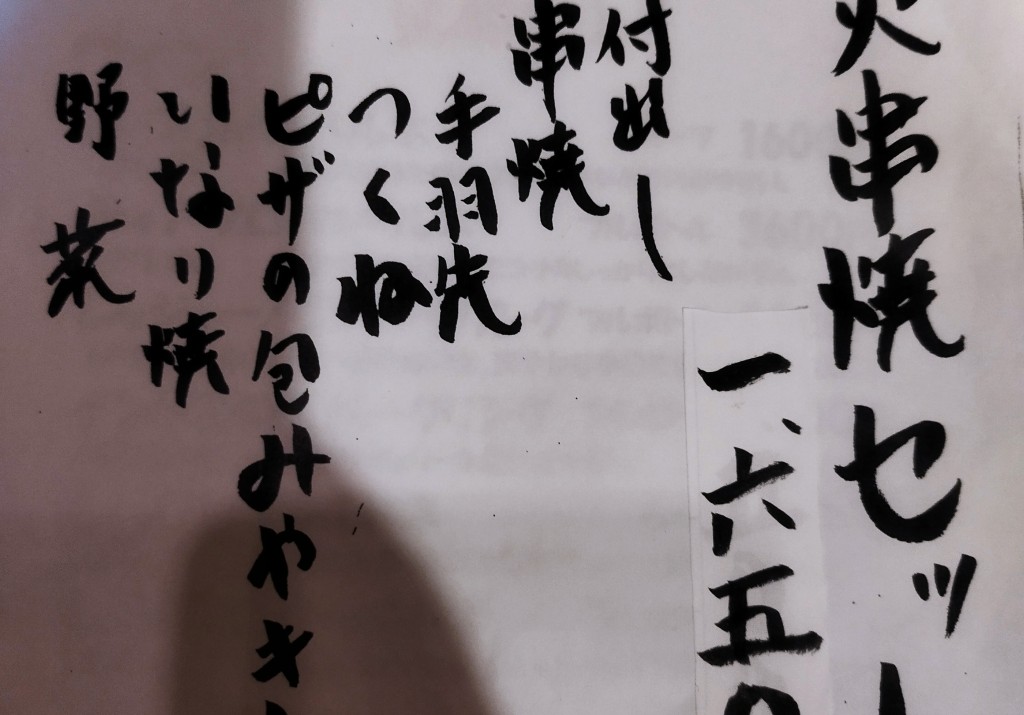 火串焼セット
一、六五〇
付出し
串焼
手羽先
つくね
ピザの包みやき
いなり焼
野菜